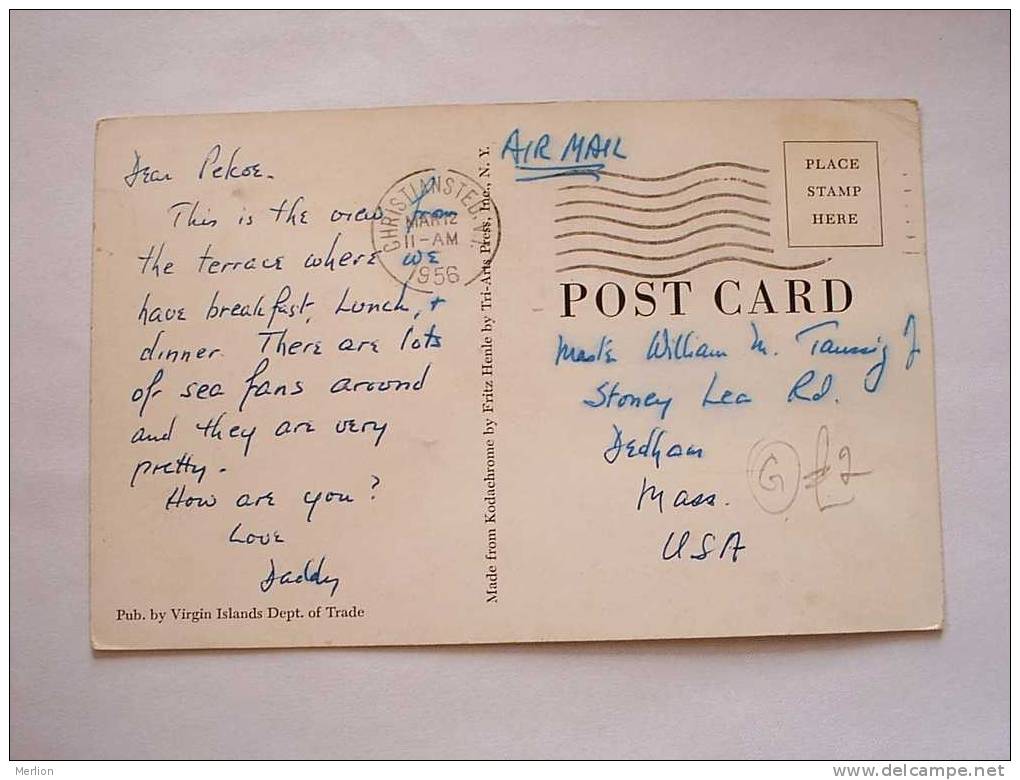 Dear Pekoe.
This is the view from
the terrace where we
have breakfast, Lunch, +
dinner. There are lots
of sea fans around
and they are very
pretty.
How are you?
Love
Daddy
Pub. by Virgin Islands Dept. of Trade
CHRISTIANSTED, V.I.
MAR 12
11-AM
1956
Made from Kodachrome by Fritz Henle by Tri-Arts Press, Inc., N. Y.
AIR MAIL
PLACE
STAMP
HERE
POST CARD
Master William M. Taussig Jr
Stoney Lea Rd.
Dedham
Mass.
USA
G £2
Merlion
delcampe.net